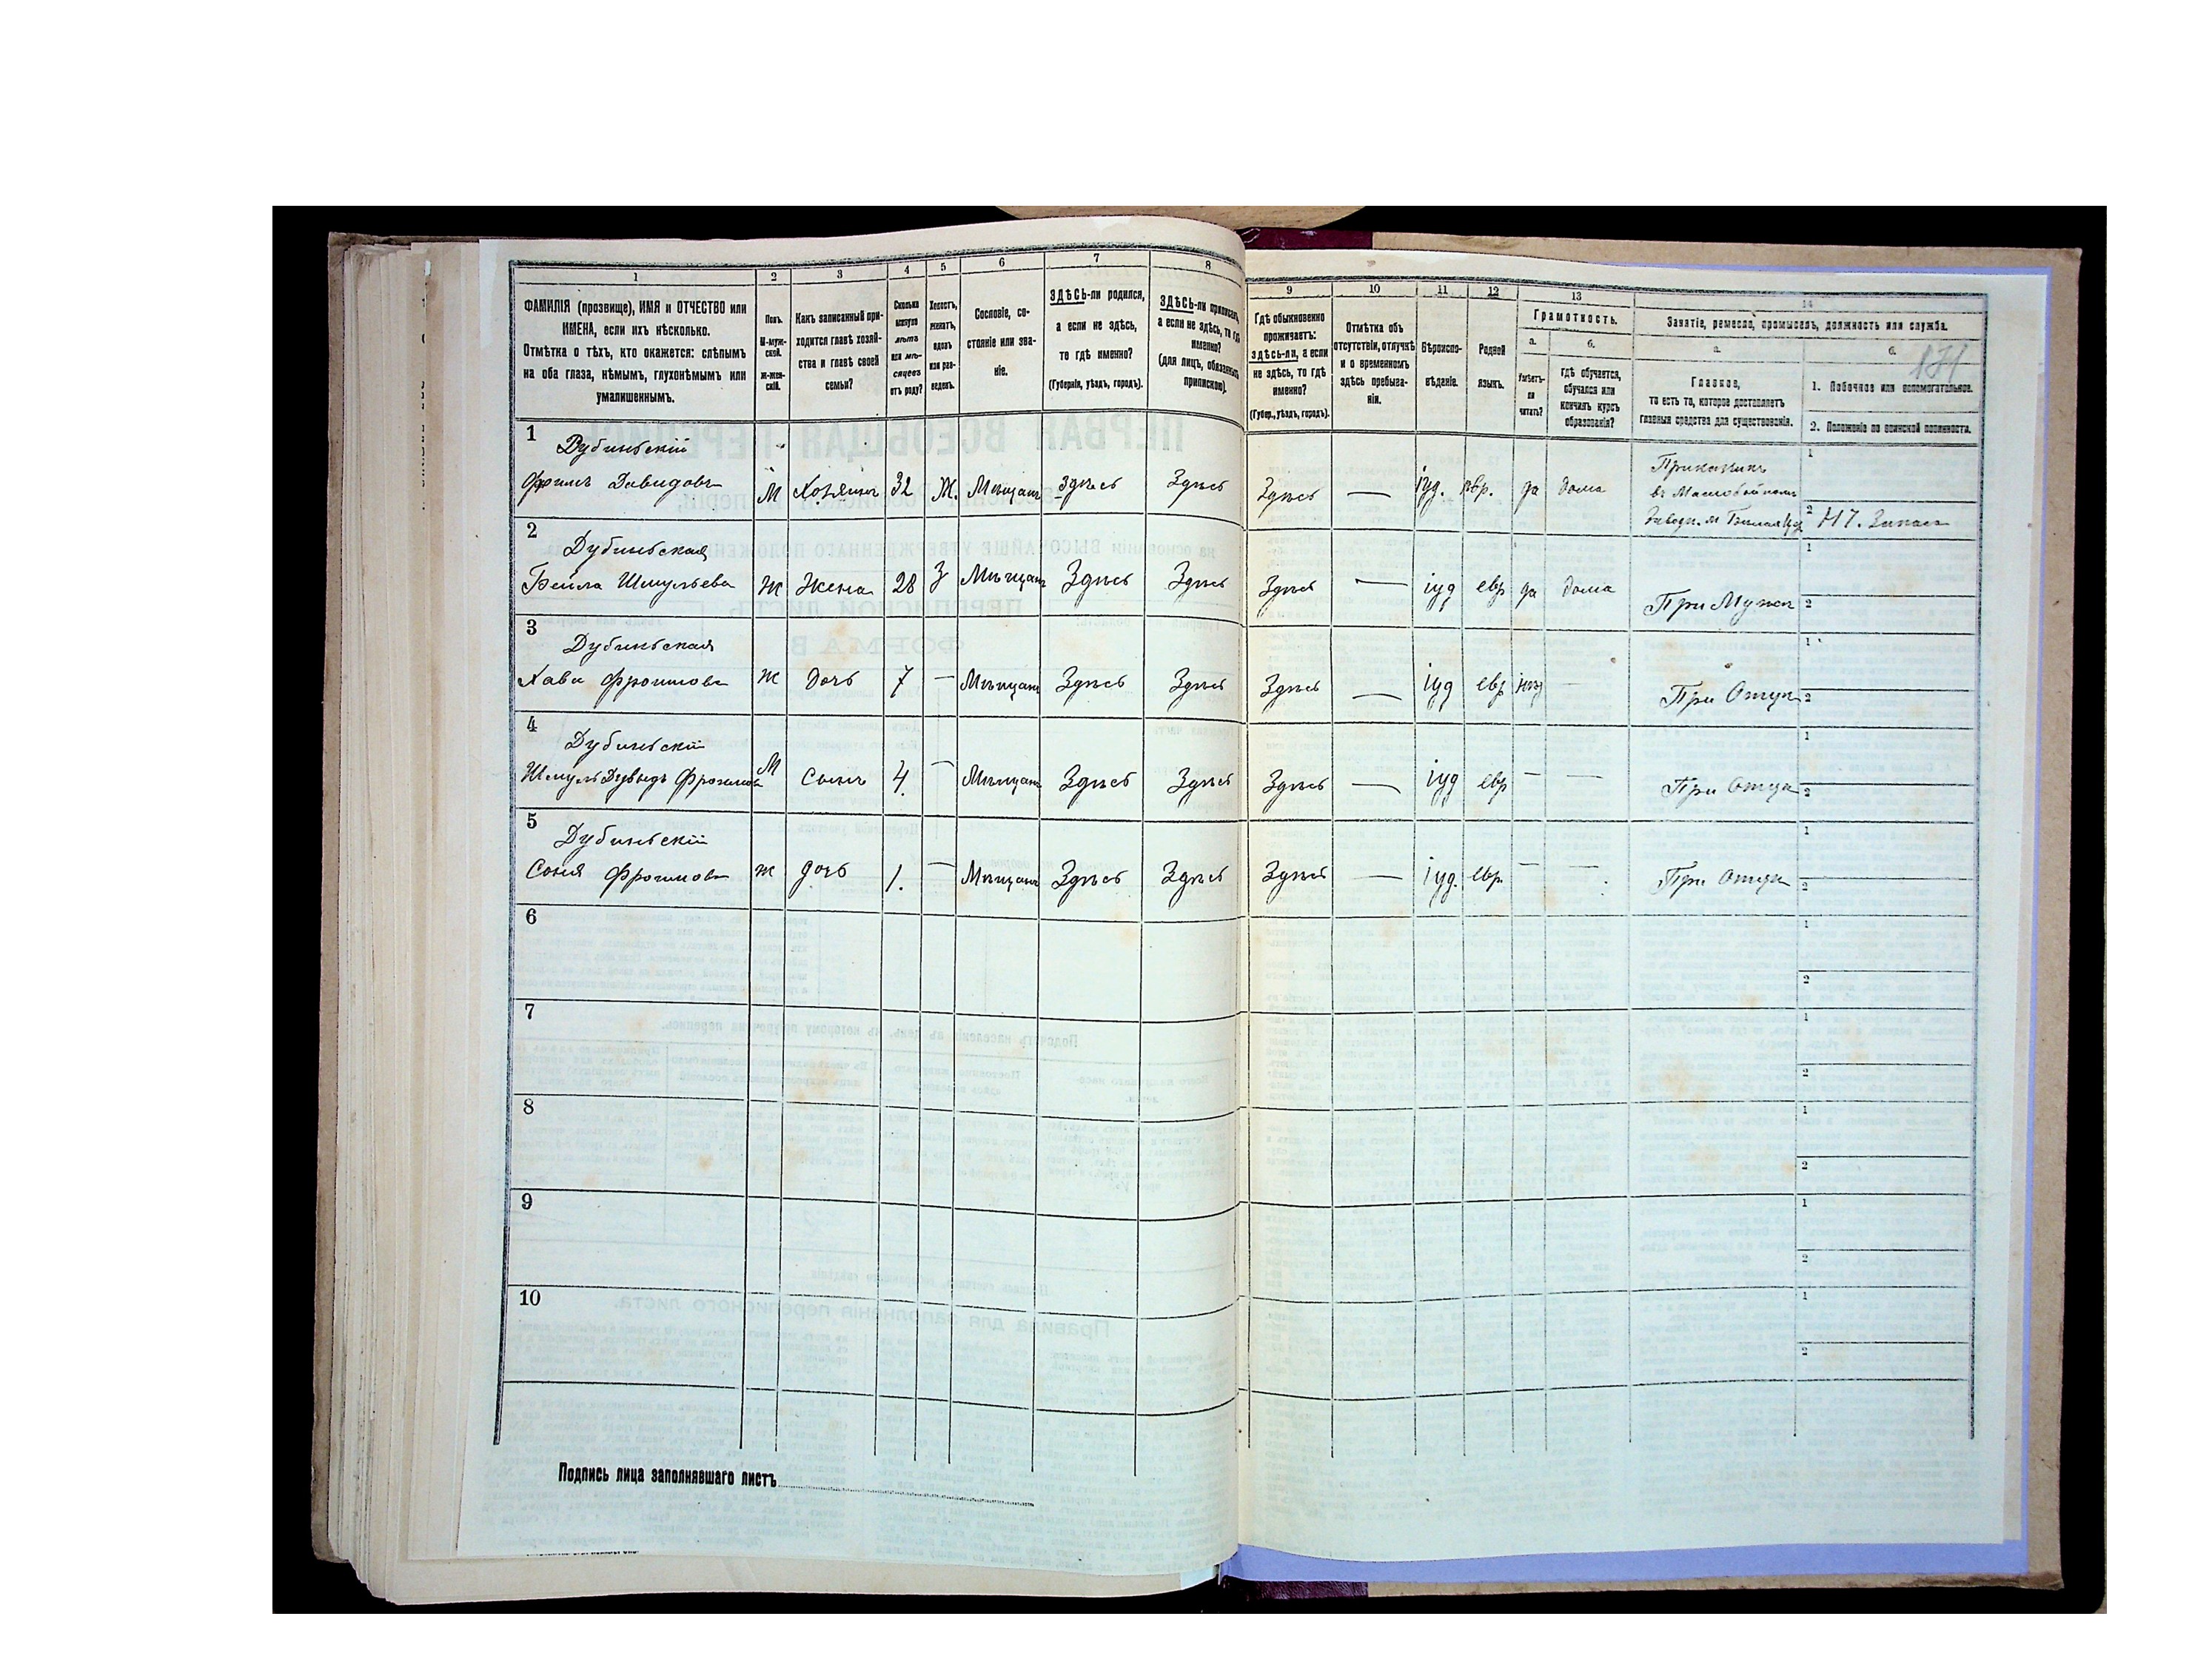 1 2 3 4 5 6 7 8
ФАМИЛІЯ (прозвище), ИМЯ и ОТЧЕСТВО или
ИМЕНА, если ихъ нѣсколько.
Отмѣтка о тѣхъ, кто окажется: слѣпымъ
на оба глаза, нѣмымъ, глухонѣмымъ или
умалишеннымъ.
Полъ.
М-муж-
ской.
Ж-жен-
скій.
Какъ записанный при-
ходится главѣ хозяй-
ства и главѣ своей
семьи?
Сколько
минуло
лѣтъ
или мѣ-
сяцевъ
отъ роду?
Холостъ,
женатъ,
вдовъ
или раз-
веденъ.
Сословіе, со-
стояніе или зва-
ніе.
ЗДѢСЬ-ли родился,
а если не здѣсь,
то гдѣ именно?
(Губернія, уѣздъ, городъ).
ЗДѢСЬ-ли приписанъ,
а если не здѣсь, то гдѣ
именно?
(для лицъ, обязанныхъ
припискою).
9 10 11 12 13 14
Гдѣ обыкновенно
проживаетъ:
здѣсь-ли, а если
не здѣсь, то гдѣ
именно?
(Губер., уѣздъ, городъ).
Отмѣтка объ
отсутствіи, отлучкѣ
и о временномъ
здѣсь пребыва-
ніи.
Вѣроиспо-
вѣданіе.
Родной
языкъ.
Грамотность.
а. б.
Умѣетъ-
ли
читать?
Гдѣ обучается,
обучался или
кончилъ курсъ
образованія?
Занятіе, ремесло, промыселъ, должность или служба.
а. б.
171
Главное,
то есть то, которое доставляетъ
главныя средства для существованія.
1. Побочное или вспомогательное.
2. Положеніе по воинской повинности.
1 Дубиньскій
Фроимъ Давидовъ М Хозяинъ 32 Ж. Мѣщанъ Здѣсь Здѣсь Здѣсь — іуд. евр. да дома
Приказчикъ
въ
1
2
2 Дубиньская
Бейла Шмульева Ж Жена 28 З Мѣщанъ Здѣсь Здѣсь Здѣсь — іуд евр да дома При Мужѣ
1
2
3 Дубиньская
Хава Фроимова Ж Дочь 7 — Мѣщанъ Здѣсь Здѣсь Здѣсь — іуд евр нѣт — При Отцѣ
1
2
4 Дубиньскій
Шмуль Дувидъ Фроимовъ М Сынъ 4. — Мѣщанъ Здѣсь Здѣсь Здѣсь — іуд евр — — При Отцѣ
1
2
5 Дубиньскій
Соня Фроимова Ж дочь 1. — Мѣщанъ Здѣсь Здѣсь Здѣсь — іуд. евр. — — При Отцѣ
1
2
6
1
2
7
1
2
8
1
2
9
1
2
10
1
2
Подпись лица заполнявшаго листъ